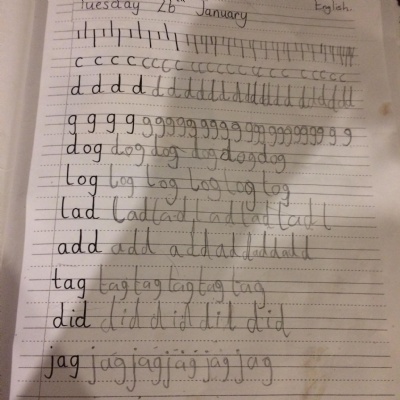 Tuesday 26th January English
c c c c c c c c c c c c c c c c c c c c c
d d d d d d d d d d d d d d d d d d d d
g g g g g g g g g g g g g g g g g g g g g g
dog dog dog dog dog dog
log log log log log log
lad lad lad lad lad lad l
add add add add add add
tag tag tag tag tag tag
did did did did did
jag jag jag jag jag jag